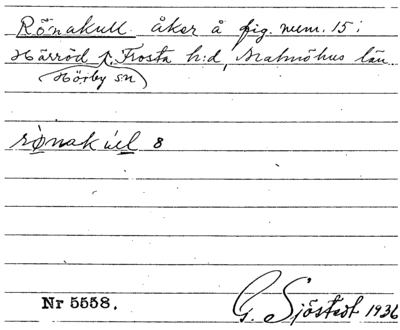 Rönakull åker å fig. num. 15 i
Härröd, Frosta h:d, Malmöhus län.
Hörby sn
8
Nr 5558.
G. Sjöstedt 1936